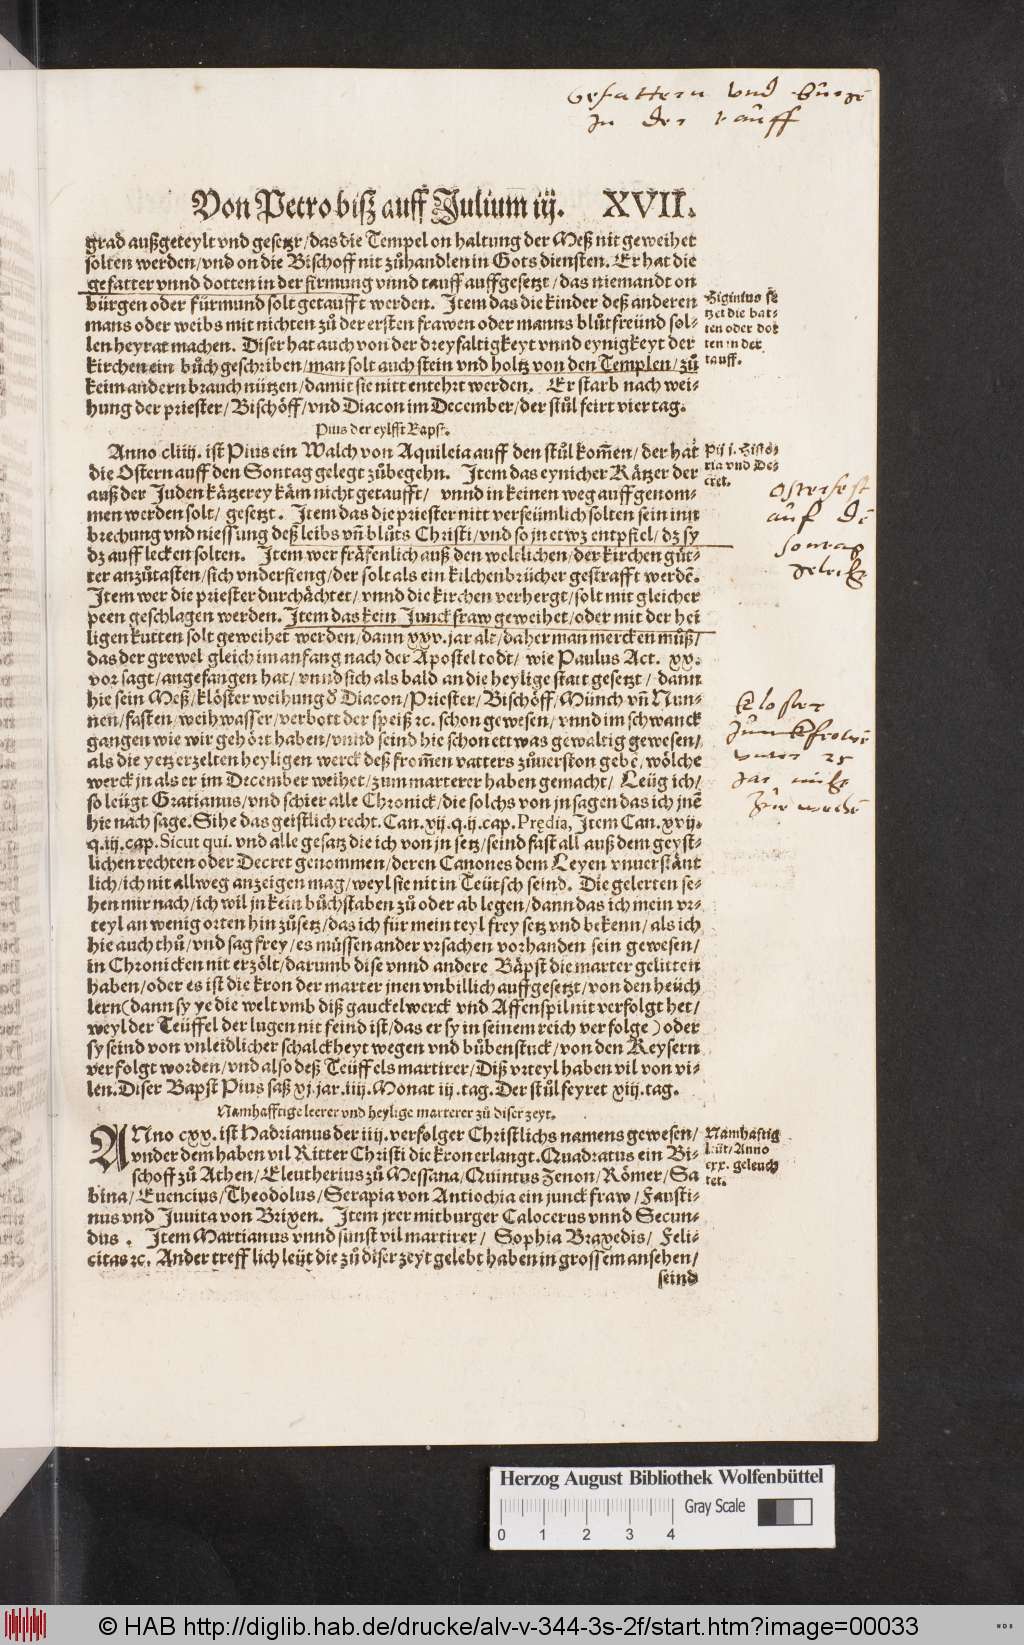 Gefattern vnd bürgē
In der tauff
Von Petro biß auff Julium iij. XVII.
grad außgeteylt vnd gesetzt/das die Tempel on haltung der Meß nit geweihet
solten werden/vnd on die Bischoff nit zůhandlen in Gots diensten. Er hat die
gefatter vnnd dotten in der firmung vnnd tauff auffgesetzt/das niemandt on
bürgen oder fürmund solt getaufft werden. Item das die kinder deß anderen
mans oder weibs mit nichten zů der ersten frawen oder manns blůtfreünd sol-
len heyrat machen. Diser hat auch von der dreyfaltigkeyt vnnd eynigkeyt der
kirchen ein bůch geschriben/man solt auch stein vnd holtz von den Templen/zů
keim andern brauch nützen/damit sie nitt entehrt werden. Er starb nach wei-
hung der priester/Bischöff/vnd Diacon im December/der stůl feirt vier tag.
Higinius se
tzet die bat-
ten oder dot
ten in der
tauff.
Pius der eylfft Bapst.
Anno cliiij. ist Pius ein Walch von Aquileia auff den stůl kom̄en/der hat
die Ostern auff den Sontag gelegt zůbegehn. Item das eynicher Kätzer der
auß der Juden kätzerey käm nicht getaufft/ vnnd in keinen weg auffgenom-
men werden solt/ gesetzt. Item das die priester nitt verseümlich solten sein inn
brechung vnd niessung deß leibs vn̄ blůts Christi/vnd so jn etwz entpfiel/dz sy
dz auff lecken solten. Item wer fräfenlich auß den weltlichen/der kirchen gůt-
ter anzůtasten/sich vnderfieng/der solt als ein kilchenbrücher gestrafft werdē.
Item wer die priester durchächtet/vnnd die kirchen verhergt/solt mit gleicher
peen geschlagen werden. Item das kein Junckfraw geweihet/oder mit der hei
ligen kutten solt geweihet werden/dann xxv. jar alt/daher man mercken můß/
das der grewel gleich im anfang nach der Apostel todt/ wie Paulus Act. xx.
vor sagt/angefangen hat/vnnd sich als bald an die heylige statt gesetzt/dann
hie sein Meß/klöster weihung d̄ Diacon/Priester/Bischöff/Münch vn̄ Nun-
nen/fasten/weihwasser/verbott der speiß ꝛc. schon gewesen/vnnd im schwanck
gangen wie wir gehört haben/vnnd seind hie schon ettwas gewaltig gewesen/
als die yetz erzelten heyligen werck deß from̄en vatters zůuerston gebē/wölche
werck jn als er im December weihet/zum marterer haben gemacht/ Leüg ich/
so leügt Gratianus/vnd schier alle Chronick/die solchs von jn sagen das ich jnē
hie nach sage. Sihe das geistlich recht. Can. xij. q. ij. cap. Prędia, Item Can. xvij.
q. iij. cap. Sicut qui. vnd alle gesatz die ich von jn setz/seind fast all auß dem geyst-
lichen rechten oder Decret genommen/deren Canones dem Leyen vnuerstänt
lich/ich nit allweg anzeigen mag/weyl sie nit in Teütsch seind. Die gelerten se-
hen mir nach/ich wil jn kein bůchstaben zů oder ab legen/dann das ich mein vr-
teyl an wenig orten hin zůsetz/das ich für mein teyl frey setz vnd bekenn/als ich
hie auch thů/vnd sag frey/es müssen ander vrsachen vorhanden sein gewesen/
in Chronicken nit erzölt/darumb dise vnnd andere Bäpst die marter gelitten
haben/oder es ist die kron der marter jnen vnbillich auffgesetzt/von den heüch
lern (dann sy ye die welt vmb diß gauckelwerck vnd Affenspil nit verfolgt het/
weyl der Teüffel der lugen nit feind ist/das er sy in seinem reich verfolge) oder
sy seind von vnleidlicher schalckheyt wegen vnd bübenstuck/von den Keysern
verfolgt worden/vnd also deß Teüffels martirer/Diß vrteyl haben vil von vi-
len. Diser Bapst Pius saß xj. jar. iiij. Monat iij. tag. Der stůl feyret xiij. tag.
Pij j. Histo-
ria vnd De-
cret.
Osterfest
auf dē
sontag
gelegt
Closter
Junckfrawē
vnder 25
Jar nicht
Zu weihē
Namhafftige leerer vnd heylige marterer zů diser zeyt.
ANno cxx. ist Hadrianus der iiij. verfolger Christlichs namens gewesen/
vnder dem haben vil Ritter Christi die kron erlangt. Quadratus ein Bi-
schoff zů Athen/Eleutherius zů Messana/Quintus Zenon/Römer/Sa
bina/Euencius/Theodolus/Serapia von Antiochia ein junckfraw/Fausti-
nus vnd Juuita von Brixen. Item jrer mitburger Calocerus vnnd Secun-
dus. Item Martianus vnnd sunst vil martirer/ Sophia Braxedis/ Feli-
citas ꝛc. Ander trefflich leüt die zů diser zeyt gelebt haben in grossem ansehen/
seind
Namhaftig
leüt/Anno
cxx. geleuch
tet.
Herzog August Bibliothek Wolfenbüttel
Gray Scale
0 1 2 3 4
© HAB http://diglib.hab.de/drucke/alv-v-344-3s-2f/start.htm?image=00033